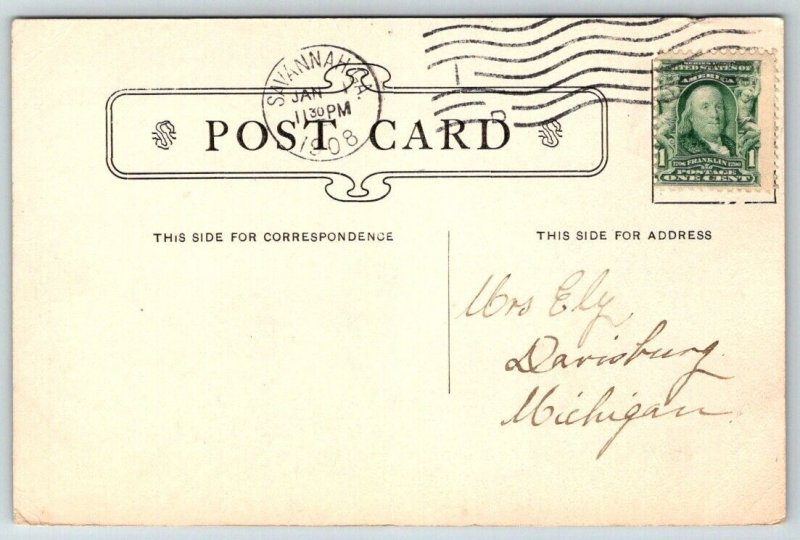 SAVANNAH, GA.
JAN 1
11 30 PM
1908
POST CARD
SERIES 1902
UNITED STATES OF
AMERICA
1 FRANKLIN 1
POSTAGE
ONE CENT
THIS SIDE FOR CORRESPONDENCE
THIS SIDE FOR ADDRESS
Mrs Ely
Davisburg
Michigan